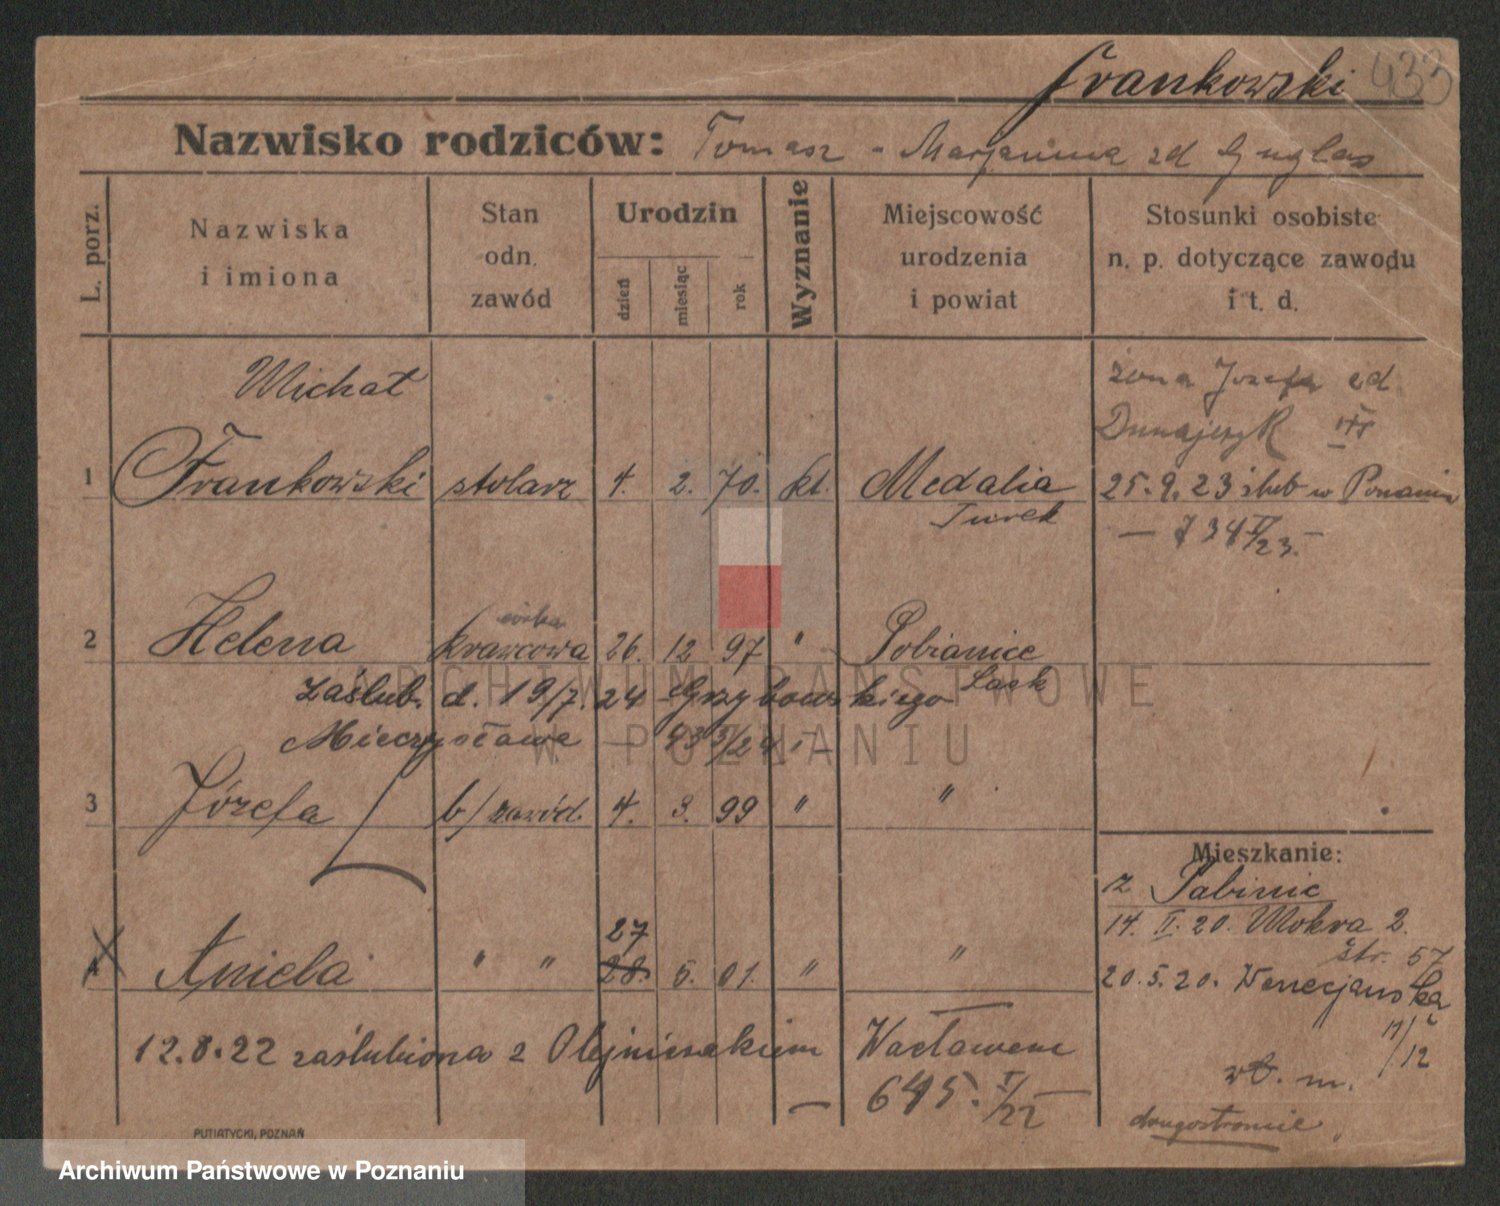 Frankowski 433
Nazwisko rodziców: Tomasz - Marjanna zd Guglas
L. porz.
Nazwiska
i imiona
Stan
odn.
zawód
Urodzin
dzień
miesiąc
rok
Wyznanie
Miejscowość
urodzenia
i powiat
Stosunki osobiste
n. p. dotyczące zawodu
i t. d.
Michał żona Józefa zd
1 Frankowski stolarz 4. 2. 70. kt. Medalia
Turek
25.9.23 ślub w Poznaniu
2 Helena córka krawcowa 26. 12 97 " Pobianice
Zaślub. d. 19/7. 24 Grzybowskiego Łask
Mieczysława
3 Józefa b/ zawód. 4. 3. 99 " "
Mieszkanie:
z Pabinic
14. II. 20. Mokra 2.
str. 57
27
4 Aniela " " 28. 5. 01. " "
20.5.20. Wenecjanska
11/12
12.8.22 zaślubiona z Olejniczakiem Wacławem
645. I/22
wł. m.
drugostronnie
PUTIATYCKI, POZNAŃ
ARCHIWUM PAŃSTWOWE
W POZNANIU
Archiwum Państwowe w Poznaniu